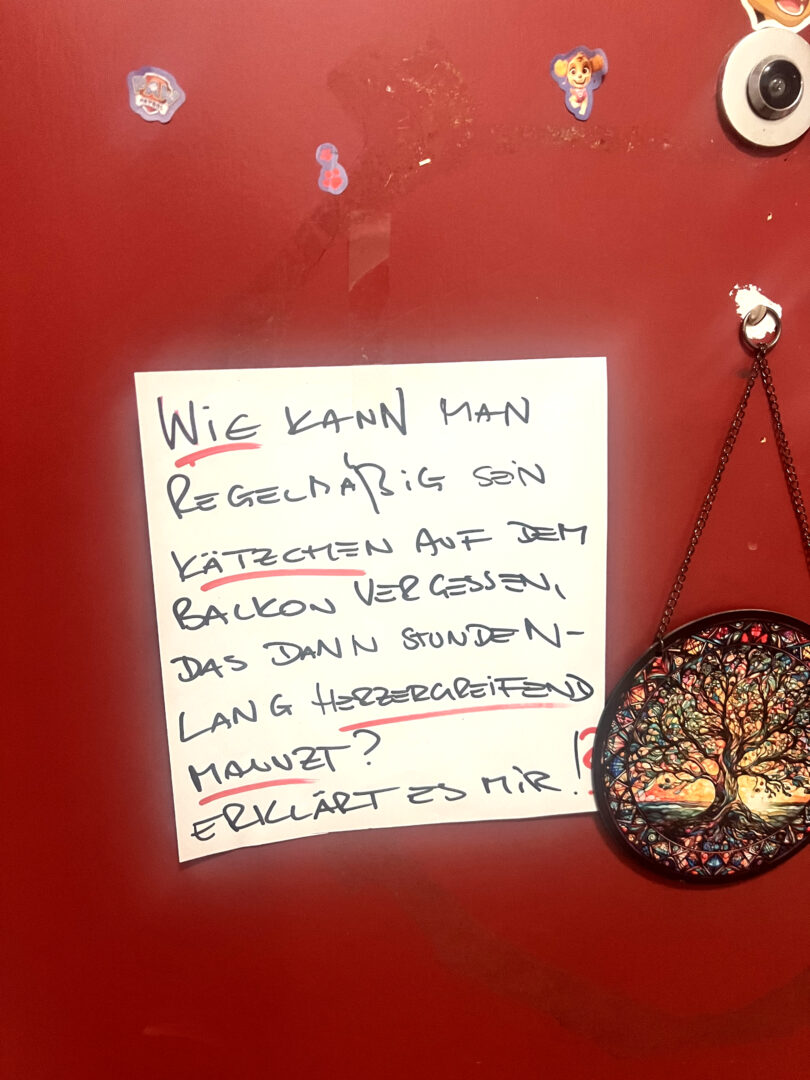 WIE KANN MAN
REGELMÄßIG SEIN
KÄTZCHEN AUF DEM
BALKON VERGESSEN,
DAS DANN STUNDEN-
LANG HERZERGREIFEND
MAUNZT?
ERKLÄRT ES MIR!?